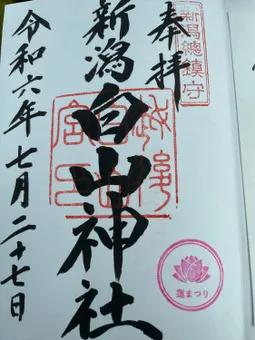 新潟總鎮守
奉拝
新潟白山神社
蓮まつり
令和六年七月二十七日